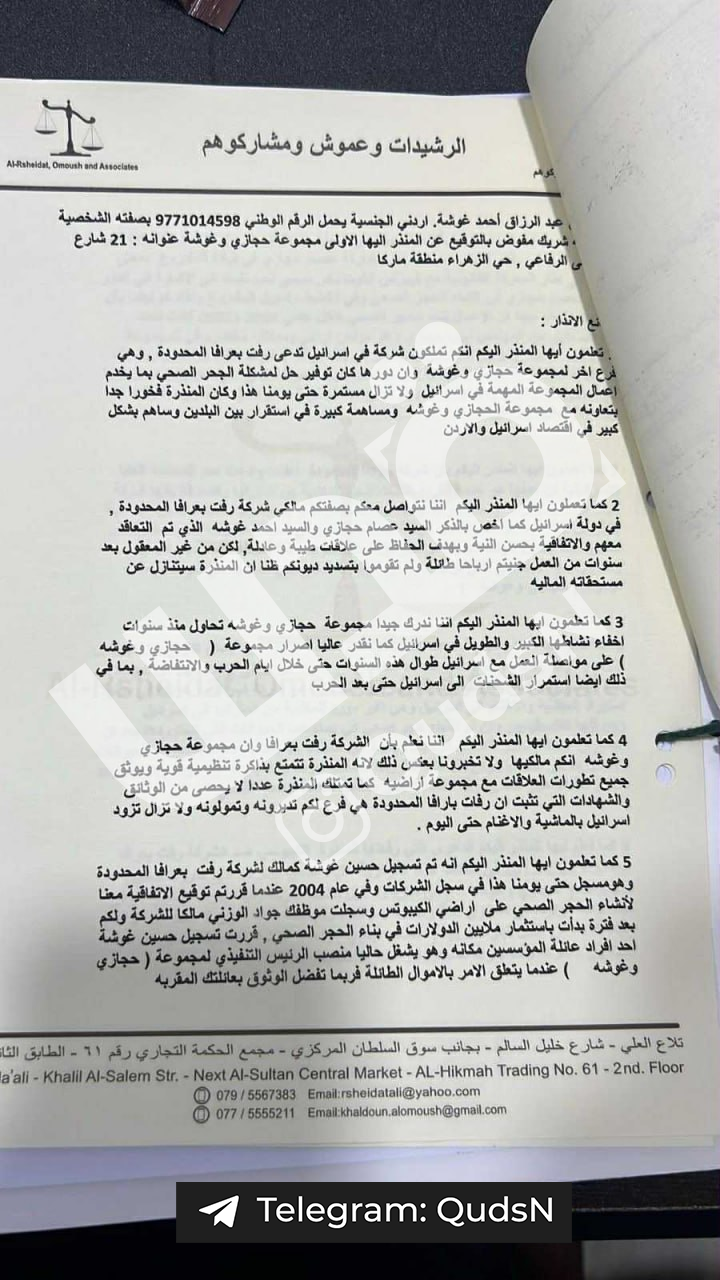 الرشيدات وعموش ومشاركوهم
Al-Rsheidat, Omoush and Associates
كوهم
عبد الرزاق أحمد غوشة, اردني الجنسية يحمل الرقم الوطني 9771014598 بصفته الشخصية
شريك مفوض بالتوقيع عن المنذر اليها الاولى مجموعة حجازي وغوشة عنوانه : 21 شارع
الرفاعي , حي الزهراء منطقة ماركا
ئع الانذار :
تعلمون أيها المنذر اليكم انكم تملكون شركة في اسرائيل تدعى رفت بعرافا المحدودة , وهي
فرع اخر لمجموعة حجازي وغوشة وان دورها كان توفير حل لمشكلة الحجر الصحي بما يخدم
اعمال المجموعة المهمة في اسرائيل ولا تزال مستمرة حتى يومنا هذا وكان المنذرة فخورا جدا
بتعاونه مع مجموعة الحجازي وغوشه ومساهمة كبيرة في استقرار بين البلدين وساهم بشكل
كبير في اقتصاد اسرائيل والاردن
2 كما تعملون ايها المنذر اليكم اننا نتواصل معكم بصفتكم مالكي شركة رفت بعرافا المحدودة ,
في دولة اسرائيل كما اخص بالذكر السيد عصام حجازي والسيد احمد غوشه الذي تم التعاقد
معهم والاتفاقية بحسن النية وبهدف الحفاظ على علاقات طيبة وعادلة, لكن من غير المعقول بعد
سنوات من العمل جنيتم ارباحا طائلة ولم تقوموا بتسديد ديونكم ظنا ان المنذرة سيتنازل عن
مستحقاته الماليه
3 كما تعلمون ايها المنذر اليكم اننا ندرك جيدا مجموعة حجازي وغوشه تحاول منذ سنوات
اخفاء نشاطها الكبير والطويل في اسرائيل كما نقدر عاليا اصرار مجموعة ( حجازي وغوشه
) على مواصلة العمل مع اسرائيل طوال هذه السنوات حتى خلال ايام الحرب والانتفاضة , بما في
ذلك ايضا استمرار الشحنات الى اسرائيل حتى بعد الحرب
4 كما تعلمون ايها المنذر اليكم اننا نعلم بأن الشركة رفت بعرافا وان مجموعة حجازي
وغوشه انكم مالكيها ولا تخبرونا بعكس ذلك لانه المنذرة تتمتع بذاكرة تنظيمية قوية ويوثق
جميع تطورات العلاقات مع مجموعة اراضيه كما تمتلك المنذرة عددا لا يحصى من الوثائق
والشهادات التي تثبت ان رفات بارافا المحدودة هي فرع لكم تديرونه وتمولونه ولا تزال تزود
اسرائيل بالماشية والاغنام حتى اليوم .
5 كما تعلمون ايها المنذر اليكم انه تم تسجيل حسين غوشة كمالك لشركة رفت بعرافا المحدودة
وهومسجل حتى يومنا هذا في سجل الشركات وفي عام 2004 عندما قررتم توقيع الاتفاقية معنا
لأنشاء الحجر الصحي على اراضي الكيبوتس وسجلت موظفك جواد الوزني مالكا للشركة ولكم
بعد فترة بدأت باستثمار ملايين الدولارات في بناء الحجر الصحي , قررت تسجيل حسين غوشة
احد افراد عائلة المؤسسين مكانه وهو يشغل حاليا منصب الرئيس التنفيذي لمجموعة ( حجازي
وغوشه ) عندما يتعلق الامر بالاموال الطائلة فربما تفضل الوثوق بعائلتك المقربه
تلاع العلي - شارع خليل السالم - بجانب سوق السلطان المركزي - مجمع الحكمة التجاري رقم ٦١ - الطابق الثا
la'ali - Khalil Al-Salem Str. - Next Al-Sultan Central Market - AL-Hikmah Trading No. 61 - 2nd. Floor
079 / 5567383 Email:rsheidatali@yahoo.com
077 / 5555211 Email:khaldoun.alomoush@gmail.com
Telegram: QudsN